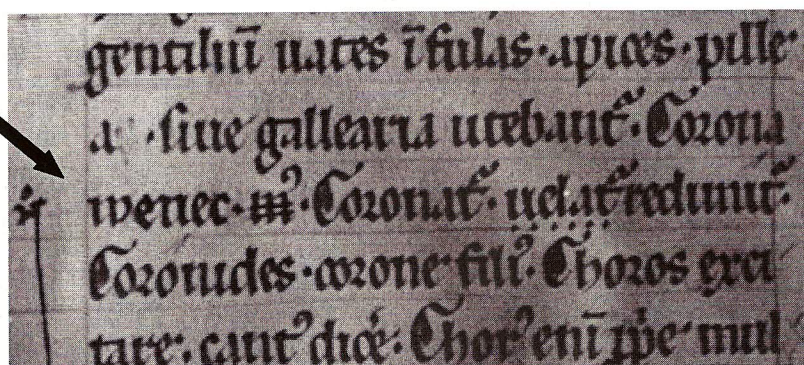 gentiliū uates īfulas · apices · pille
a · siue gallearia utebant᷑ · Corona
wenec · m̅⁹ · Coronat᷑ · uelat᷑ redimit᷑ ·
Coronides · corone fili⁹ · Choros exci
tare · cant⁹ dicē · Chor⁹ enī ꝓpe mul